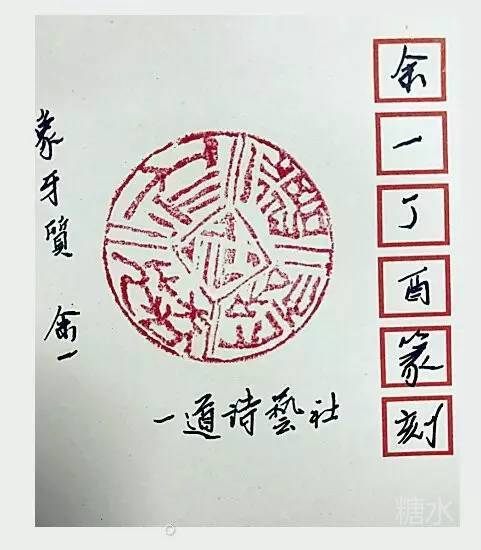 余一丁酉篆刻
象牙質 余一
一道诗藝社
糖水